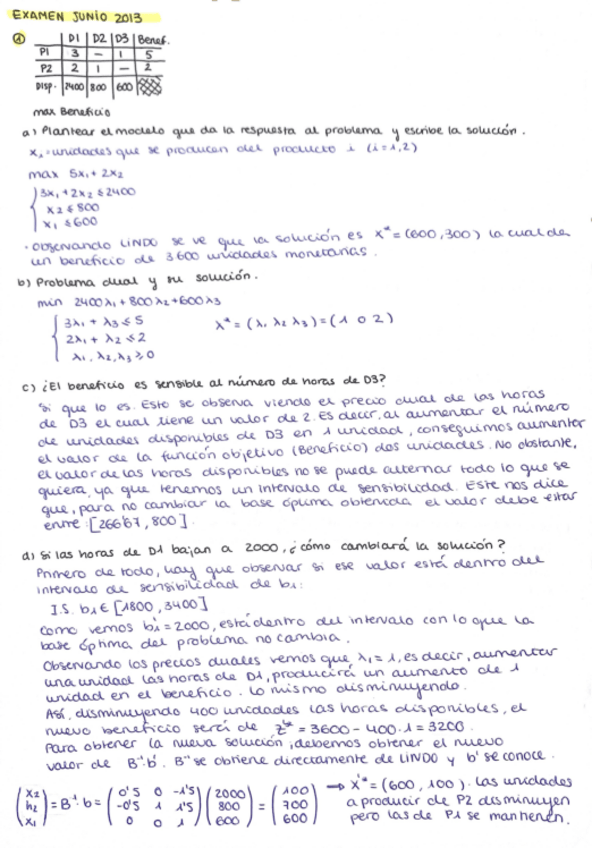 EXAMEN JUNIO 2013
① D1 D2 D3 Benef.
P1 3 - 1 5
P2 2 1 - 2
Disp. 2400 800 600
max Beneficio
a) Plantear el modelo que da la respuesta al problema y escribe la solución.
xᵢ = unidades que se producen del producto i (i=1,2)
max 5x₁ + 2x₂
3x₁ + 2x₂ ≤ 2400
x₂ ≤ 800
x₁ ≤ 600
· Observando LINDO se ve que la solución es x* = (600,300) la cual da
un beneficio de 3600 unidades monetarias.
b) Problema dual y su solución.
min 2400λ₁ + 800λ₂ + 600λ₃
3λ₁ + λ₃ ≤ 5 λ* = (λ₁ λ₂ λ₃) = (1 0 2)
2λ₁ + λ₂ ≤ 2
λ₁, λ₂, λ₃ ≥ 0
c) ¿El beneficio es sensible al número de horas de D3?
Si que lo es. Esto se observa viendo el precio dual de las horas
de D3 el cual tiene un valor de 2. Es decir, al aumentar el número
de unidades disponibles de D3 en 1 unidad, conseguimos aumentar
el valor de la función objetivo (Beneficio) dos unidades. No obstante,
el valor de las horas disponibles no se puede alternar todo lo que se
quiera, ya que tenemos un intervalo de sensibilidad. Este nos dice
que, para no cambiar la base óptima obtenida el valor debe estar
entre: [266'67, 800].
d) Si las horas de D1 bajan a 2000, ¿cómo cambiará la solución?
Primero de todo, hay que observar si ese valor está dentro del
intervalo de sensibilidad de b₁:
I.S. b₁ ∈ [1800, 3400]
Como vemos b₁' = 2000, está dentro del intervalo con lo que la
base óptima del problema no cambia.
Observando los precios duales vemos que λ₁ = 1, es decir, aumentar
una unidad las horas de D1, producirá un aumento de 1
unidad en el beneficio. Lo mismo disminuyendo.
Así, disminuyendo 400 unidades las horas disponibles, el
nuevo beneficio será de z'* = 3600 - 400·1 = 3200.
Para obtener la nueva solución, debemos obtener el nuevo
valor de B⁻¹b'. B⁻¹ se obtiene directamente de LINDO y b' se conoce.
(x₂ h₂ x₁) = B⁻¹·b = (0'5 0 -1'5 -0'5 1 1'5 0 0 1) (2000 800 600) = (100 700 600) → x'* = (600, 100). Las unidades
a producir de P2 disminuyen
pero las de P1 se mantienen.